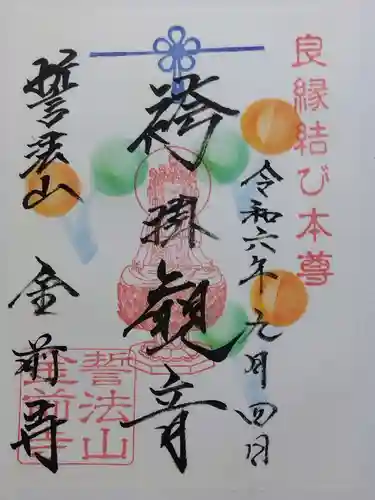 良縁結び本尊
令和六年九月四日
袴掛観音
誓法山 金前寺
誓法山
金前寺